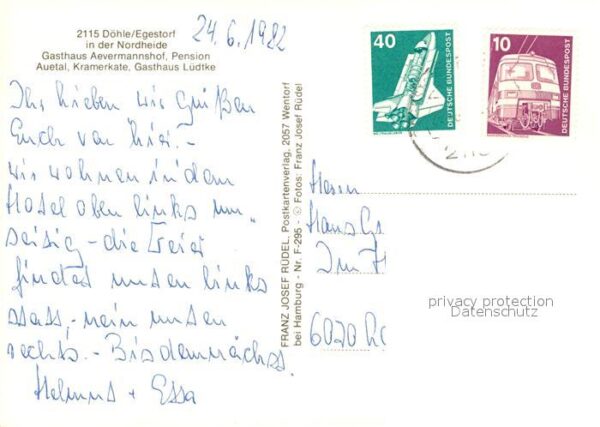 24.6.1982
2115 Döhle/Egestorf
in der Nordheide
Gasthaus Aevermannshof, Pension
Auetal, Kramerkate, Gasthaus Lüdtke
Ihr Lieben wir grüßen
Euch von hier.-
Wir wohnen in dem
Hotel oben links
- die Feier
findet unten links
statt,- nein unten
rechts.- Bis demnächst.
Helmut + Essa
FRANZ JOSEF RÜDEL, Postkartenverlag, 2057 Wentorf
bei Hamburg - Nr. F-295 - © Fotos: Franz Josef Rüdel
40
DEUTSCHE BUNDESPOST
10
DEUTSCHE BUNDESPOST
Herrn
Hans
Im H
6020
privacy protection
Datenschutz